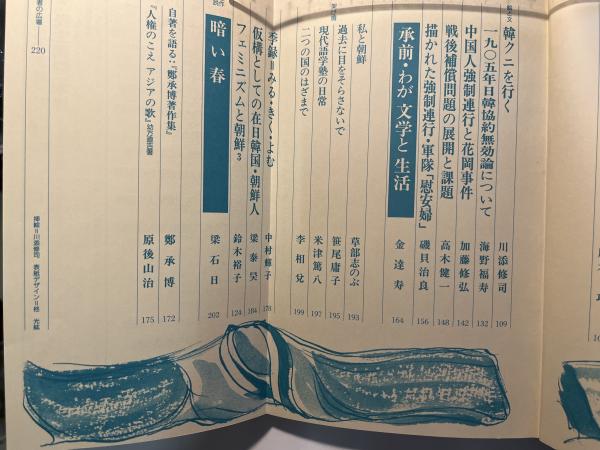 韓クニを行く
川添修司
109
一九〇五年日韓協約無効論について
海野福寿
132
中国人強制連行と花岡事件
加藤修弘
142
戦後補償問題の展開と課題
高木健一
148
描かれた強制連行・軍隊「慰安婦」
磯貝治良
156
承前・わが文学と生活
金達寿
164
私と朝鮮
草部志のぶ
193
過去に目をそらさないで
笹尾庸子
195
現代語学塾の日常
米津篤八
197
二つの国のはざまで
李相兌
199
季録=みる・きく・よむ
中村輝子
178
仮構としての在日韓国・朝鮮人
梁泰昊
184
フェミニズムと朝鮮3
鈴木裕子
124
暗い春
梁石日
202
自著を語る:『鄭承博著作集』
鄭承博
172
『人権のこえ アジアの歌』幼方直吉著
原後山治
175
者の広場
220
挿絵=川添修司 表紙デザイン=根 光紘